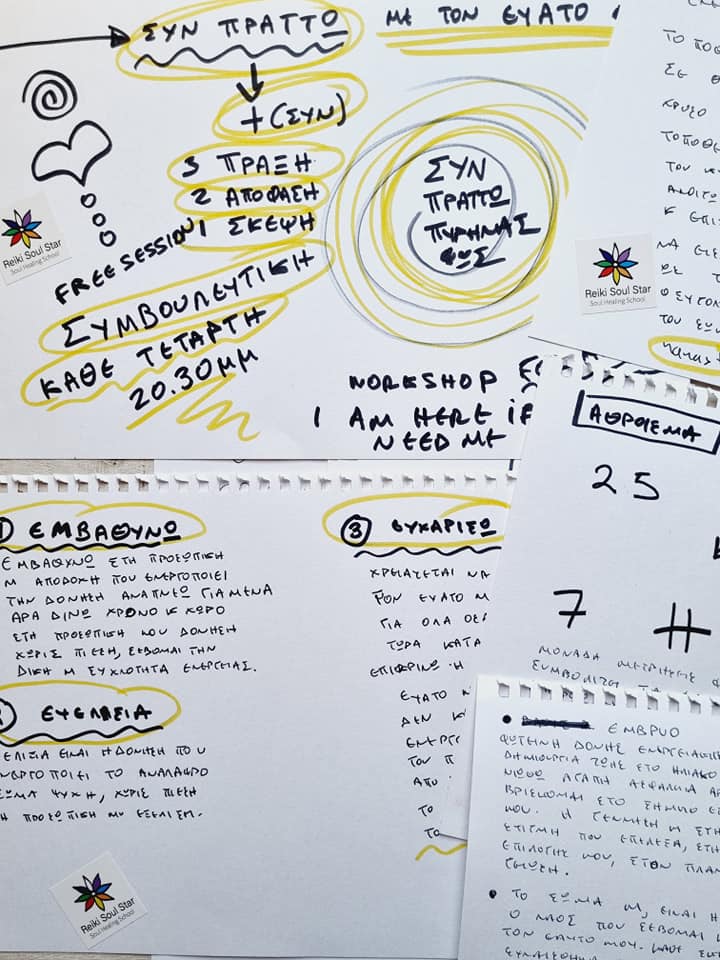 ΣΥΝ ΠΡΑΤΤΩ
ΜΕ ΤΟΝ ΕΥΑΤΟ
+ (ΣΥΝ)
3 ΠΡΑΞΗ
2 ΑΠΟΦΑΣΗ
1 ΣΚΕΨΗ
FREE SESSION
ΣΥΜΒΟΥΛΕΥΤΙΚΗ
ΚΑΘΕ ΤΕΤΑΡΤΗ
20.30ΜΜ
ΣΥΝ
ΠΡΑΤΤΩ
ΠΥΡΗΝΑΣ
ΦΩΣ
WORKSHOP
I AM HERE IF
NEED ME
Reiki Soul Star
Soul Healing School
ΤΟ ΠΟΘ
ΣΕ
ΧΡΥΣΟ
ΤΟΠΟΘΕ
ΤΟΝ
Κ ΕΠΙ
ΝΑ
ΩΣ
ΤΟΥ ΣΩ
Reiki Soul Star
Soul Healing School
ΑΘΡΟΙΣΜΑ
25
7 #
ΜΟΝΑΔΑ ΜΕΤΡΗΣΗΣ
ΣΥΜΒΟΛΙΖΕΙ
1 ΕΜΒΑΘΥΝΩ
ΕΜΒΑΘΥΝΩ ΣΤΗ ΠΡΟΣΩΠΙΚΗ
Μ ΑΠΟΔΟΧΗ ΠΟΥ ΕΝΕΡΓΟΠΟΙΕΙ
ΤΗΝ ΔΟΝΗΣΗ ΑΝΑΠΝΕΩ ΓΙΑ ΜΕΝΑ
ΑΡΑ ΔΙΝΩ ΧΡΟΝΟ Κ ΧΩΡΟ
ΣΤΗ ΠΡΟΣΩΠΙΚΗ ΜΟΥ ΔΟΝΗΣΗ
ΧΩΡΙΣ ΠΙΕΣΗ, ΣΕΒΟΜΑΙ ΤΗΝ
ΔΙΚΗ Μ ΣΥΧΝΟΤΗΤΑ ΕΝΕΡΓΕΙΑΣ.
ΕΥΕΛΙΞΙΑ
ΕΛΙΞΙΑ ΕΙΝΑΙ Η ΔΟΝΗΣΗ ΠΟΥ
ΝΕΡΓΟΠΟΙΕΙ ΤΟ ΑΝΑΛΑΦΡΟ
ΣΩΜΑ ΨΥΧΗ, ΧΩΡΙΣ ΠΙΕΣΗ
Η ΠΡΟΣΩΠΙΚΗ ΜΟΥ ΕΞΕΛΙΞΗ.
Reiki Soul Star
Soul Healing School
3 ΕΥΧΑΡΙΣΩ
ΧΡΕΙΑΖΕΤΑΙ ΝΑ
ΤΟΝ ΕΥΑΤΟ Μ
ΓΙΑ ΟΛΑ ΟΣΑ
ΤΩΡΑ ΚΑΤΑ
ΕΠΙΦΕΡΝΩ Η
ΕΥΑΤΟ
ΔΕΝ
ΕΝΕΡΓΕ
ΤΟΥ Π
ΑΠΟ
ΤΟ
ΤΟ
ΕΜΒΡΥΟ
ΦΩΤΕΙΝΗ ΔΟΝΗΣ
ΔΗΜΙΟΥΡΓΙΑ ΖΩΗΣ ΣΤΟ ΗΛΙΑΚΟ
ΝΙΩΘΩ ΑΓΑΠΗ ΑΣΦΑΛΕΙΑ ΑΡ
ΒΡΙΣΚΟΜΑΙ ΣΤΟ ΣΗΜΕΙΟ
ΜΟΥ. Η ΓΕΝΝΗΣΗ Μ ΣΤΗ
ΣΤΙΓΜΗ ΠΟΥ ΕΠΕΛΕΞΑ, ΣΤΗ
ΕΠΙΛΟΓΗΣ ΜΟΥ, ΣΤΟΝ ΠΛΑΝ
ΓΕΙΩΣΗ.
ΤΟ ΣΩΜΑ Μ, ΕΙΝΑΙ Η
Ο ΝΑΟΣ ΠΟΥ ΣΕΒΟΜΑΙ
ΤΟΝ ΕΑΥΤΟ ΜΟΥ. ΚΑΘΕ
ΣΥΝΑΙΣΘΗΜ